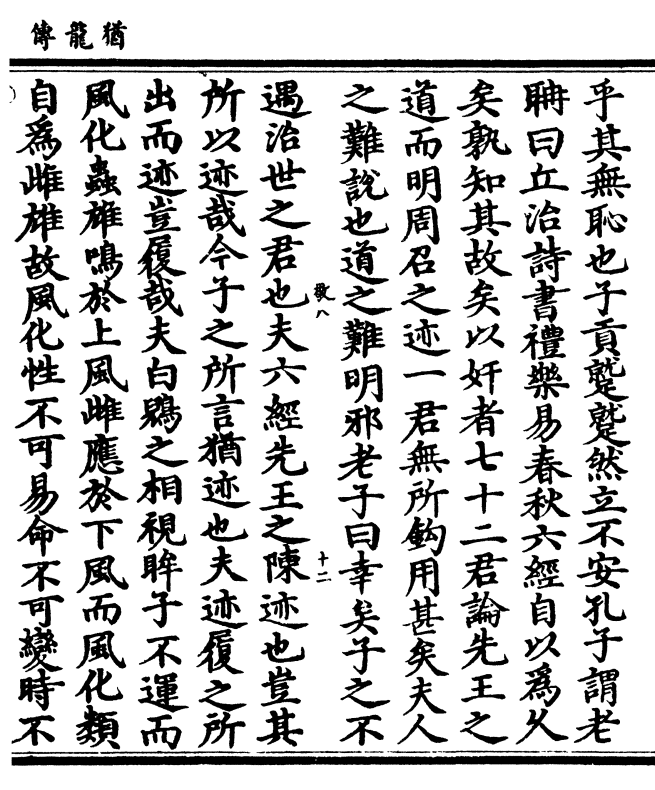 猶龍傳
乎其無恥也子貢蹵蹵然立不安孔子謂老
聃曰丘治詩書禮樂易春秋六經自以為久
矣孰知其故矣以奸者七十二君論先王之
道而明周召之迹一君無所鈎用甚矣夫人
之難說也道之難明邪老子曰幸矣子之不
敬八
十二
遇治世之君也夫六經先王之陳迹也豈其
所以迹哉今子之所言猶迹也夫迹履之所
出而迹豈履哉夫白鶂之相視眸子不運而
風化蟲雄鳴於上風雌應於下風而風化類
自為雌雄故風化性不可易命不可變時不